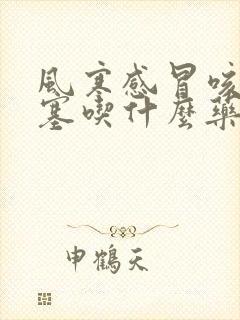 風寒感冒咳
塞喫什麼藥
申鶴天